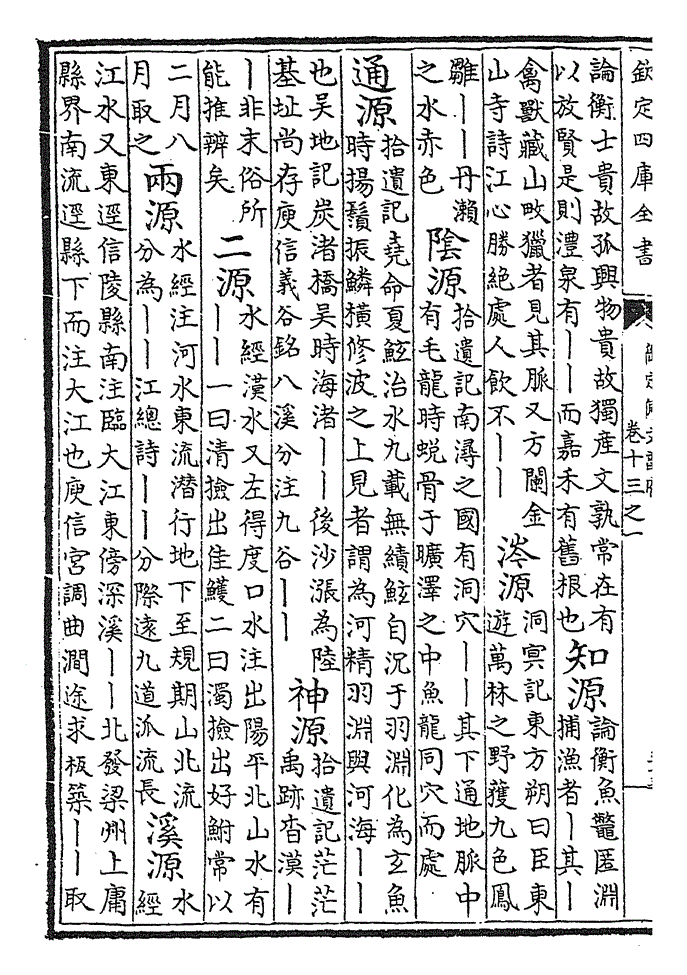 欽定四庫全書
卷十三之一
論衡士貴故孤興物貴故獨產文孰常在有
以放賢是則澧泉有丨丨而嘉禾有舊根也
知源
論衡魚鼈匿淵
捕漁者丨其丨
禽獸藏山畋獵者見其脈又方闗金
山寺詩江心勝絕處人飲不丨丨
涔源
洞㝠記東方朔曰臣東
遊萬林之野獲九色鳳
雛丨丨丹瀨
之水赤色
陰源
拾遺記南潯之國有洞穴丨丨其下通地脈中
有毛龍時蛻骨于曠澤之中魚龍同穴而處
通源
拾遺記堯命夏鯀治水九載無績鯀自沉于羽淵化為玄魚
時揚鬚振鱗橫修波之上見者謂為河精羽淵與河海丨丨
也吳地記炭渚橋吳時海渚丨丨後沙漲為陸
基址尚存庾信義谷銘八溪分注九谷丨丨
神源
拾遺記茫茫
禹跡杳漠丨
丨非末俗所
能推辨矣
二源
水經漢水又左得度口水注出陽平北山水有
丨丨一曰清撿出佳鱯二曰濁撿出好鮒常以
二月八
月取之
兩源
水經注河水東流潛行地下至規期山北流
分為丨丨江總詩丨丨分際遠九道派流長
溪源
水
經
江水又東逕信陵縣南注臨大江東傍深溪丨丨北發梁州上庸
縣界南流逕縣下而注大江也庾信宮調曲澗途求板築丨丨取